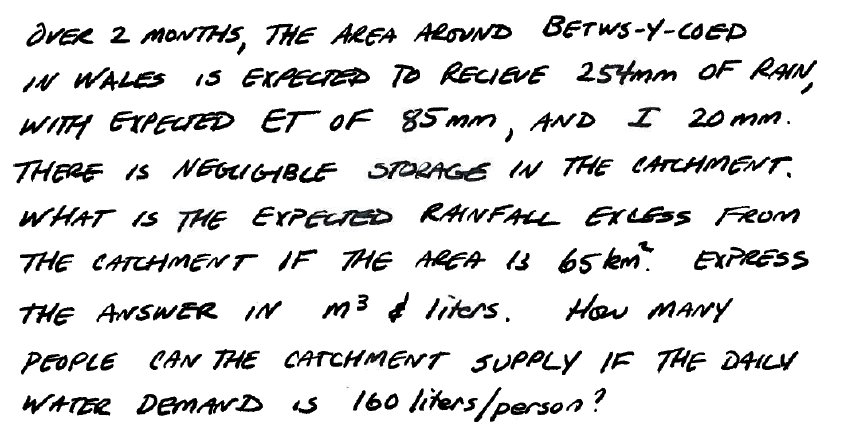 OVER 2 MONTHS, THE AREA AROUND BETWS-Y-COED
IN WALES IS EXPECTED TO RECIEVE 254mm OF RAIN,
WITH EXPECTED ET OF 85mm, AND I 20mm.
THERE IS NEGLIGIBLE STORAGE IN THE CATCHMENT.
WHAT IS THE EXPECTED RAINFALL EXCESS FROM
THE CATCHMENT IF THE AREA IS 65km². EXPRESS
THE ANSWER IN m³ & liters. HOW MANY
PEOPLE CAN THE CATCHMENT SUPPLY IF THE DAILY
WATER DEMAND IS 160 liters/person?